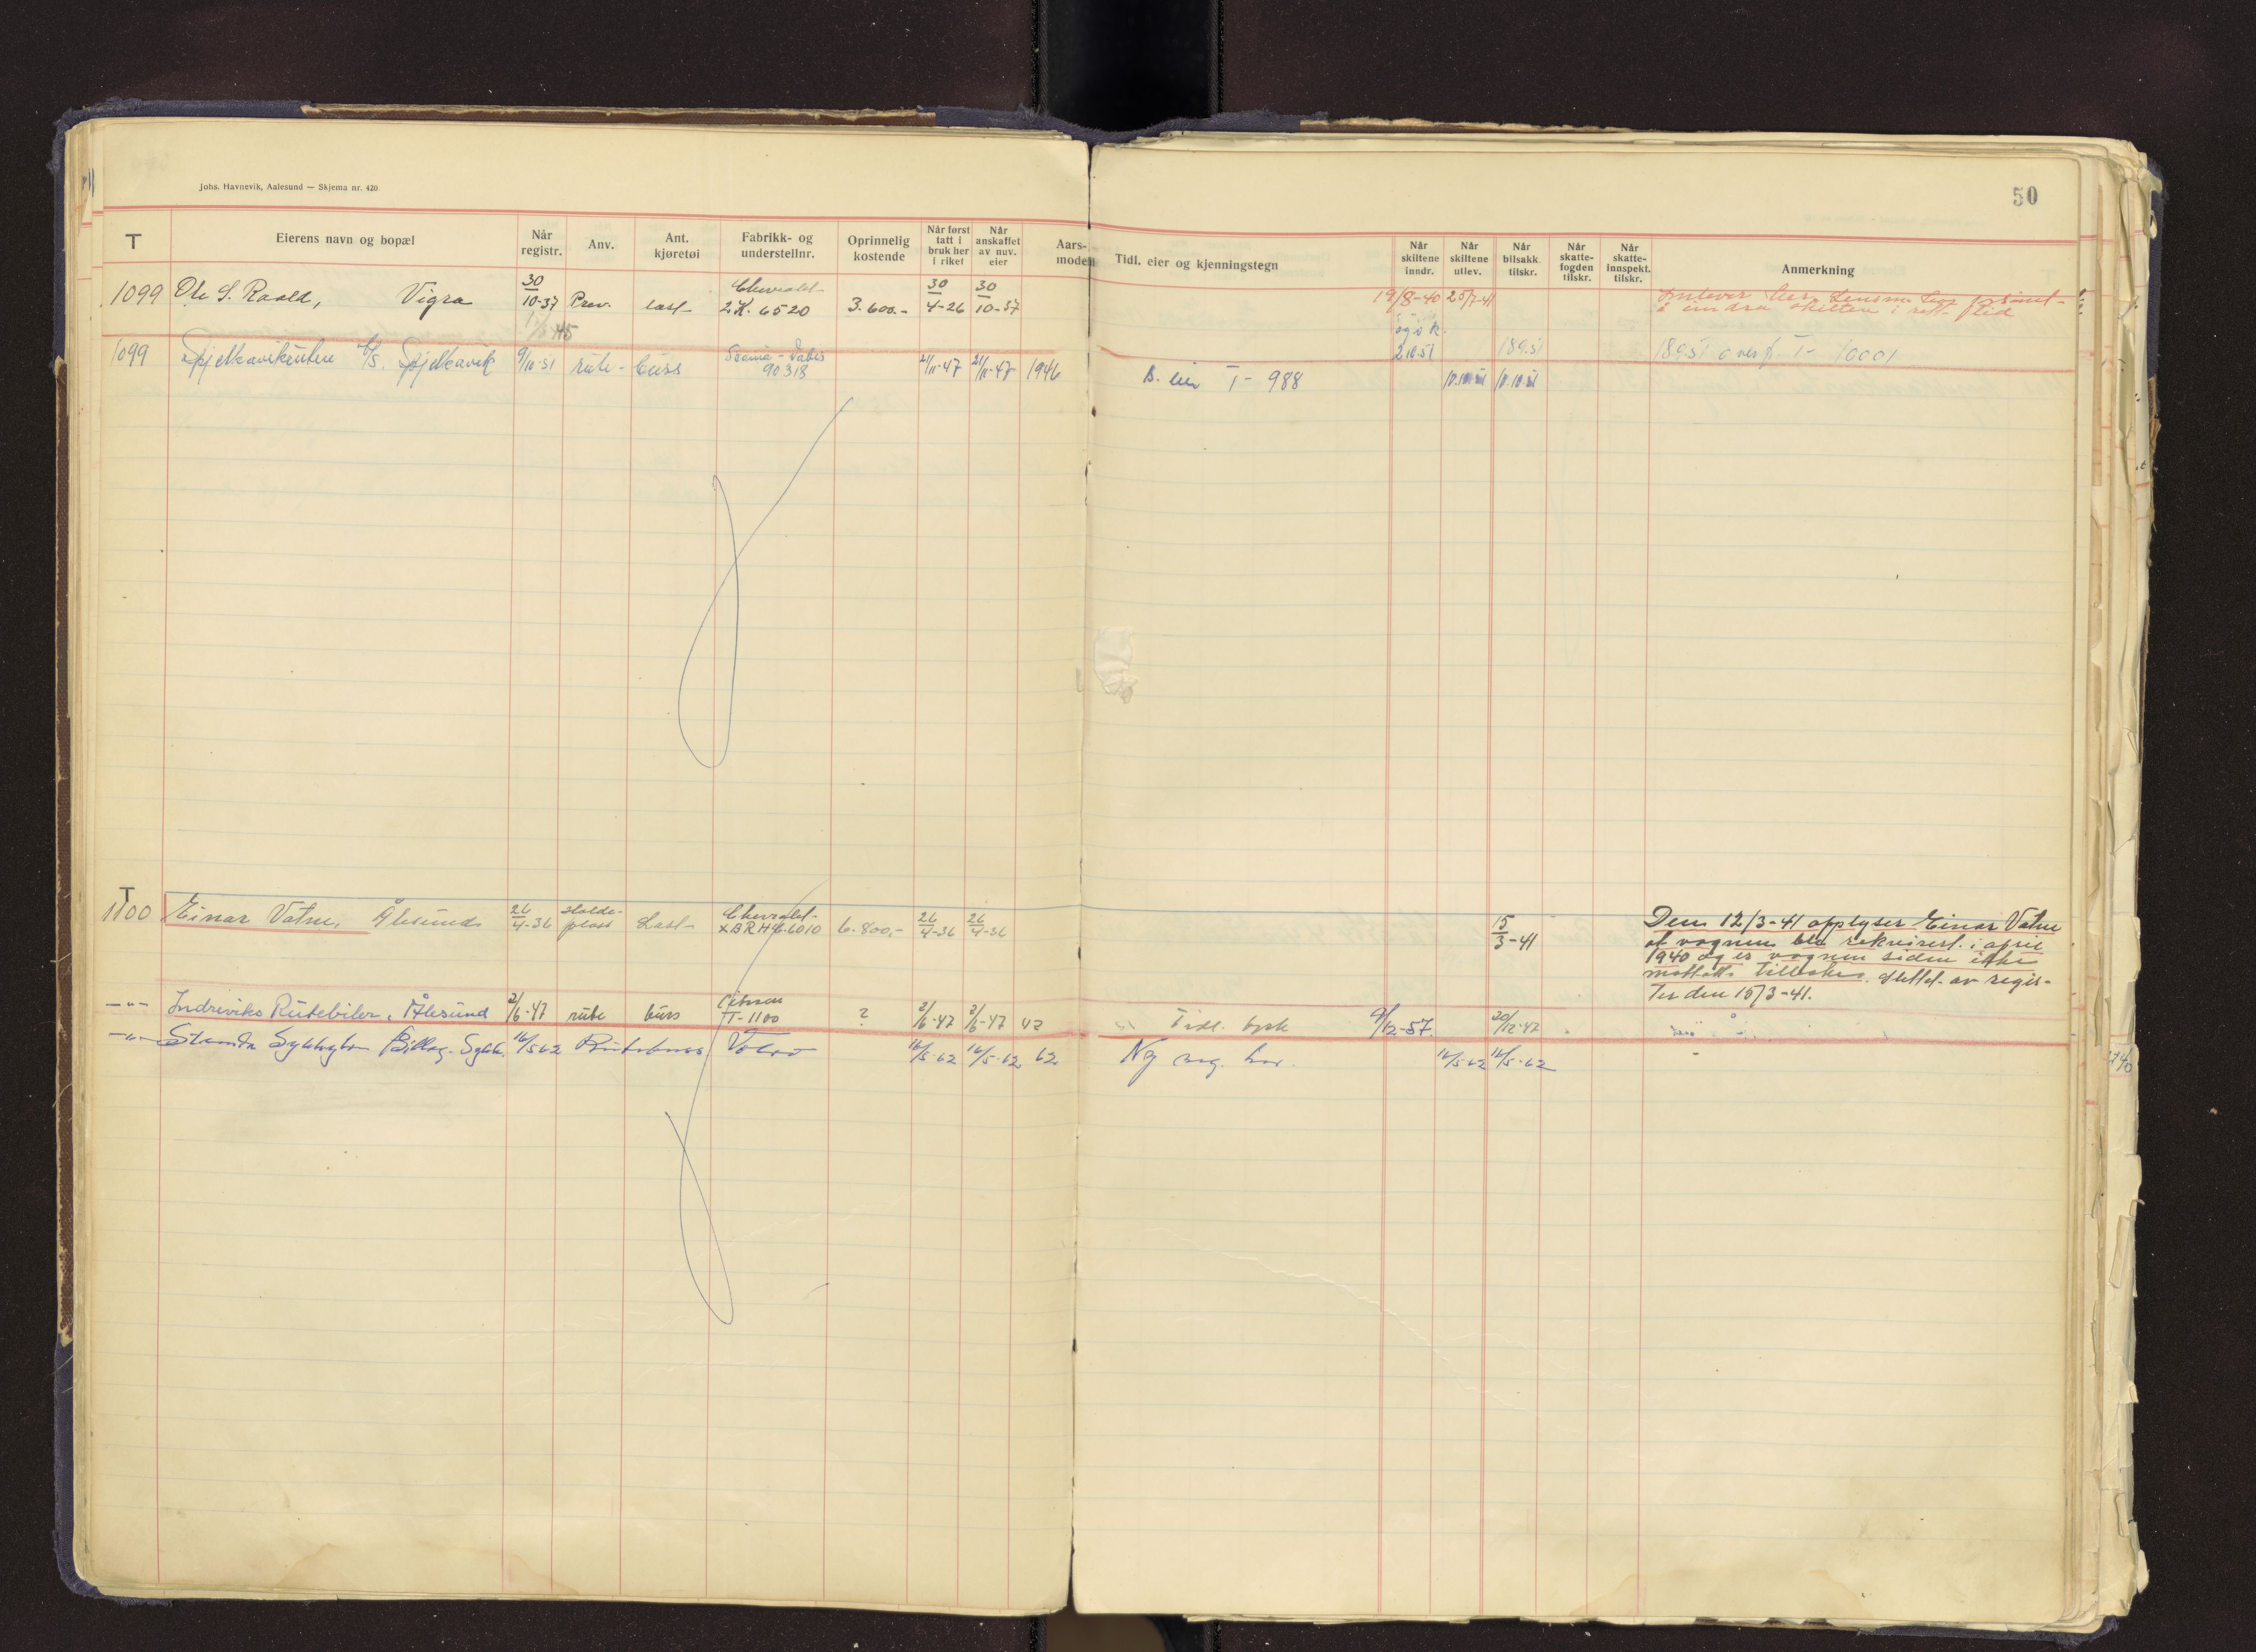 Johs. Havnevik, Aalesund — Skjema nr. 420
50
T | Eierens navn og bopæl | Når registr. | Anv. | Ant. kjøretøi | Fabrikk- og understellnr. | Oprinnelig kostende | Når først tatt i bruk her i riket | Når anskaffet av nuv. eier | Aars-modell | Tidl. eier og kjenningstegn | Når skiltene inndr. | Når skiltene utlev. | Når bilsakk. tilskr. | Når skatte-fogden tilskr. | Når skatte-innspekt. tilskr. | Anmerkning
1099 Ole S. Roald, Vigra 30/10-37 Prev. last- Chevrolet 2K. 6520 3.600.- 30/4-26 30/10-37 19/8-40 25/7-41
2.10.51 18.9.51 18.9.51 overf. T- 10001
1099 Spjelkavikruten A/S. Spjelkavik 9/11-51 rute- buss Scania-Vabis 90318 21/11-47 21/11-47 1946 B. eier T- 988 10.10.51 10.10.51
T
1100 Einar Vatne, Ålesund 26/4-36 Holde-plass Last- Chevrolet- 6.800.- 26/4-36 26/4-36 15/3-41 Den 12/3-41 opplyser Einar Vatne
at vognen ble rekvirert i april
1940 og er vognen siden ikke
mottatt tilbake. Slettet av regis-
ter den 15/3-41.
-"- Indreviks Rutebiler, Ålesund 2/6-47 rute buss Citroen T-1100 ? 2/6-47 2/6-47 47 Tidl. tysk 9/12-57. 20/12-47
-"- Stranda Sykkylven Billag. Sykk. 16/5 62 Rutebuss Volvo 16/5-62 16/5-62 62 Ny 16/5-62 16/5-62